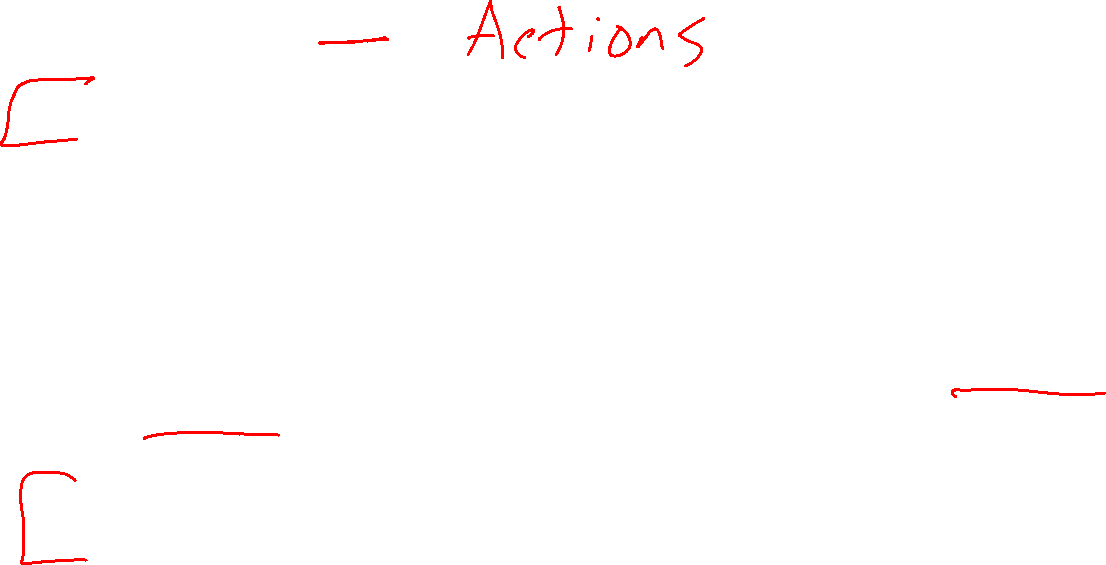 - Actions